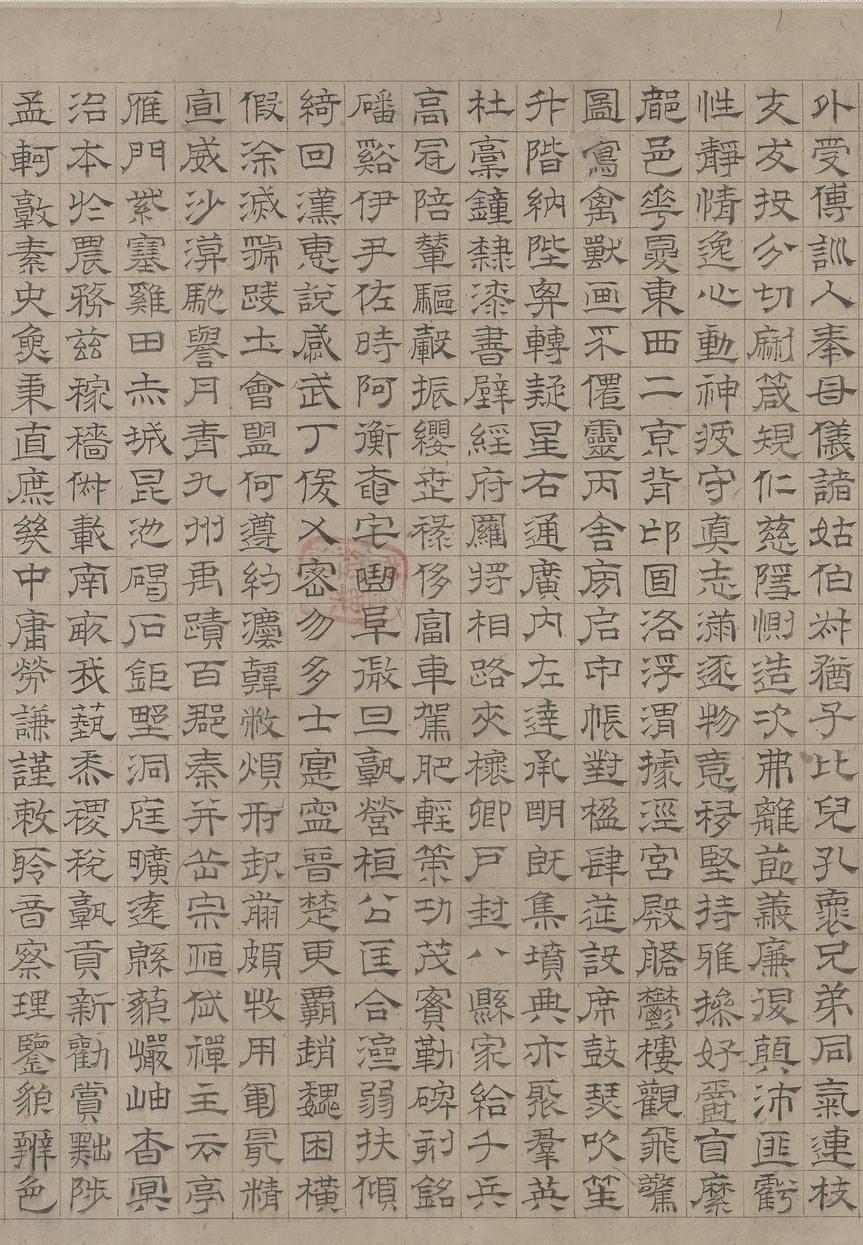 外受傅訓入奉母儀諸姑伯叔猶子比兒孔懷兄弟同氣連枝
交友投分切磨箴規仁慈隱惻造次弗離節義廉退顛沛匪虧
性靜情逸心動神疲守真志滿逐物意移堅持雅操好爵自縻
都邑華夏東西二京背邙面洛浮渭據涇宮殿盤鬱樓觀飛驚
圖寫禽獸画采僊靈丙舍傍启甲帳對楹肆筵設席鼓瑟吹笙
升階納陛弁轉疑星右通廣內左達承明既集墳典亦聚羣英
杜稾鐘隸漆書壁經府羅將相路夾槐卿戶封八縣家給千兵
高冠陪輦驅轂振纓世祿侈富車駕肥輕策功茂實勒碑刻銘
磻谿伊尹佐時阿衡奄宅曲阜微旦孰營桓公匡合濟弱扶傾
綺回漢惠說感武丁俊乂密勿多士寔寧晉楚更霸趙魏困橫
假涂滅虢踐土會盟何遵約法韓弊煩刑起翦頗牧用軍最精
宣威沙漠馳譽丹青九州禹蹟百郡秦并岳宗恒岱禪主云亭
雁門紫塞雞田赤城昆池碣石鉅野洞庭曠遠緜藐巖岫杳冥
治本於農務茲稼穡俶載南畝我藝黍稷稅孰貢新勸賞黜陟
孟軻敦素史魚秉直庶幾中庸勞謙謹敕聆音察理鑒貌辨色